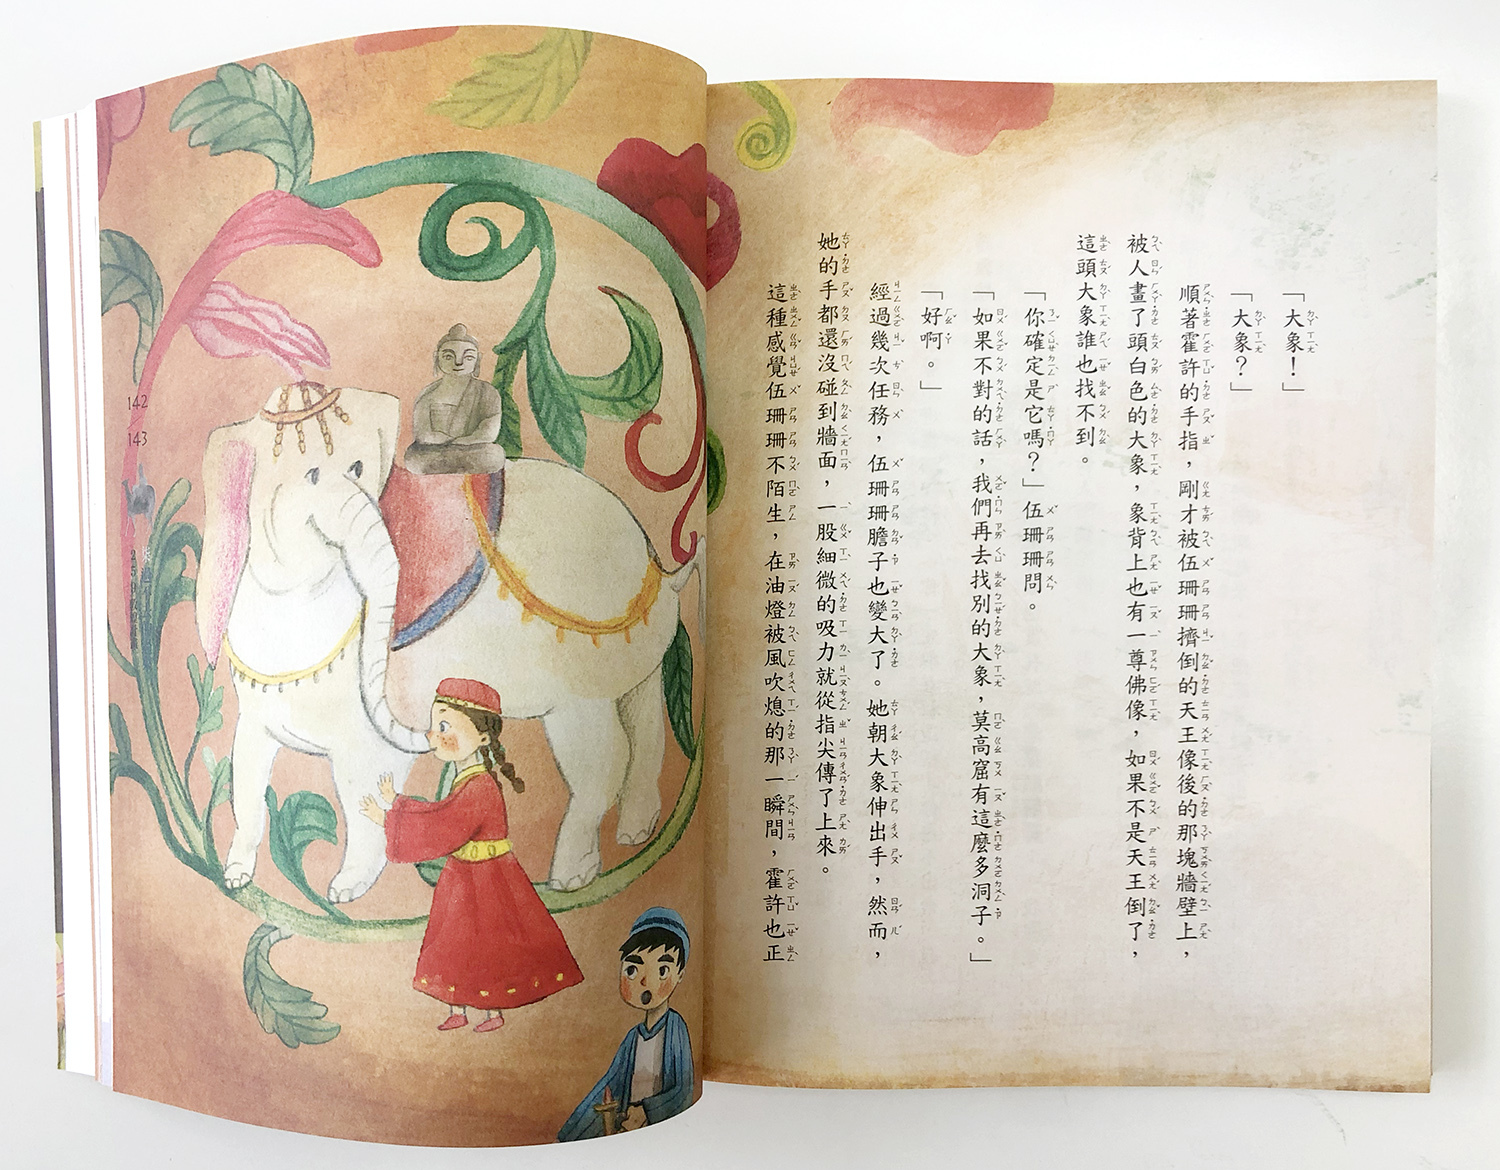 「大象！」
「大象？」
順著霍許的手指，剛才被伍珊珊擠倒的天王像後的那塊牆壁上，
被人畫了頭白色的大象，象背上也有一尊佛像，如果不是天王倒了，
這頭大象誰也找不到。
「你確定是它嗎？」伍珊珊問。
「如果不對的話，我們再去找別的大象，莫高窟有這麼多洞子。」
「好啊。」
經過幾次任務，伍珊珊膽子也變大了。她朝大象伸出手，然而，
她的手都還沒碰到牆面，一股細微的吸力就從指尖傳了上來。
這種感覺伍珊珊不陌生，在油燈被風吹熄的那一瞬間，霍許也正
142
143